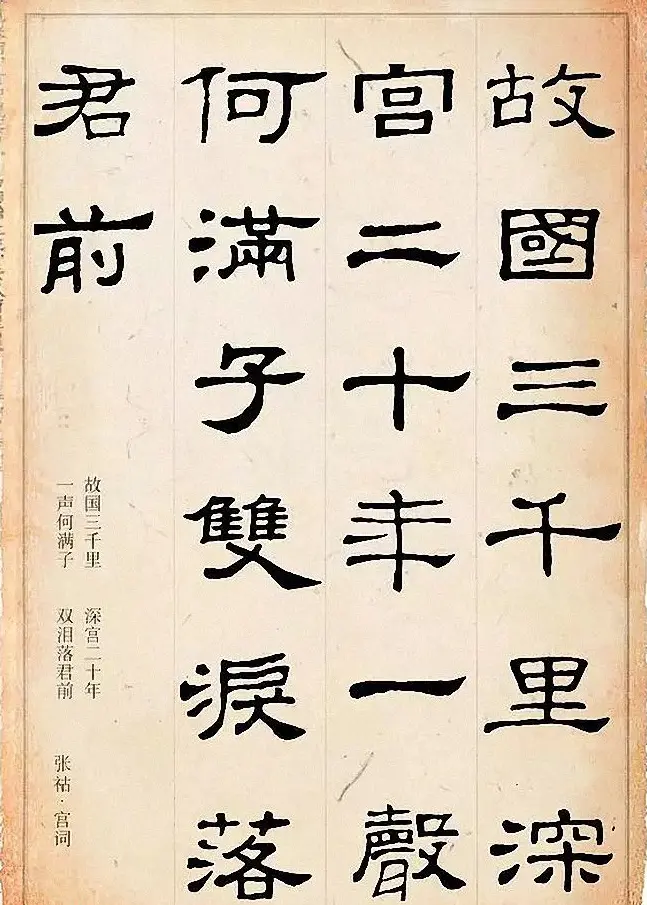 故國三千里深
宮二十年一聲
何滿子雙淚落
君前
故国三千里 深宫二十年
一声何满子 双泪落君前
张祜·宫词